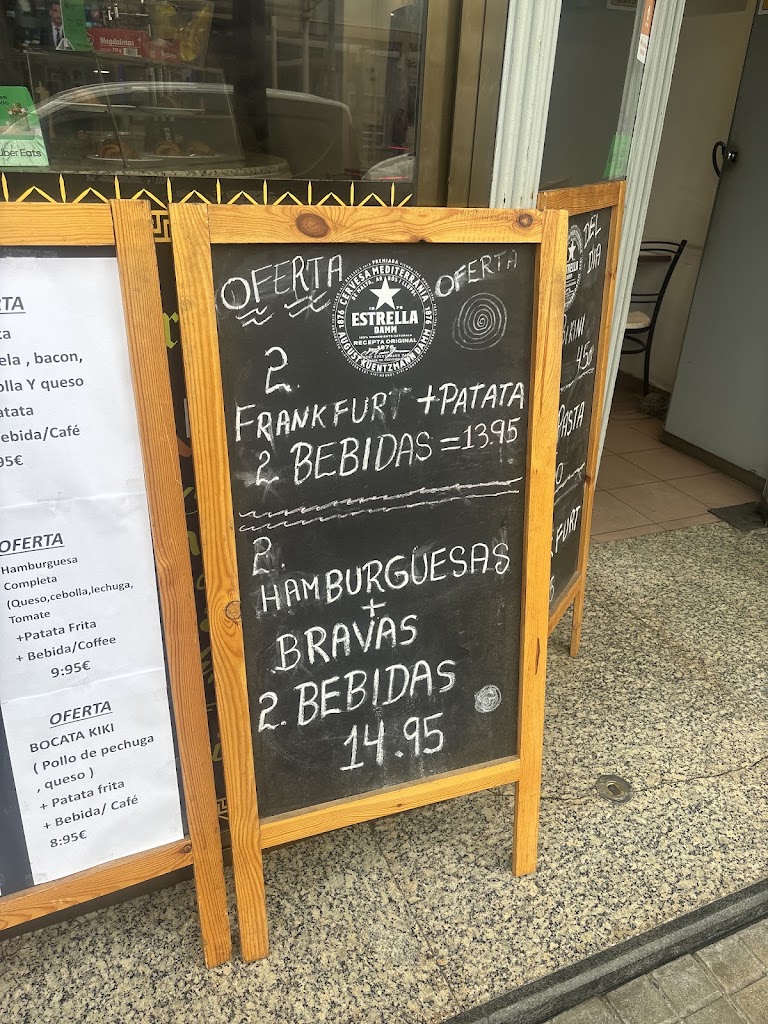 Magdalenas
Uber Eats
OFERTA
bacon,
Y queso
95€
OFERTA
Hamburguesa
Completa
(Queso,cebolla,lechuga,
Tomate
+Patata Frita
+ Bebida/Coffee
9:95€
OFERTA
BOCATA KIKI
( Pollo de pechuga
, queso )
+ Patata frita
+ Bebida/ Café
8:95€
OFERTA
OFERTA
PREMIADA
CERVESA MEDITERRÀNIA
DE MALTA, ARRÒS I LLÚPOL
1876
1876
ESTRELLA
DAMM
100% INGREDIENTS NATURALS
RECEPTA ORIGINAL
1876
AUGUST KUENTZMANN DAMM
2.
FRANKFURT +PATATA
2 BEBIDAS = 13.95
2.
HAMBURGUESAS
+
BRAVAS
2. BEBIDAS
14.95
DEL
DIA
4,50